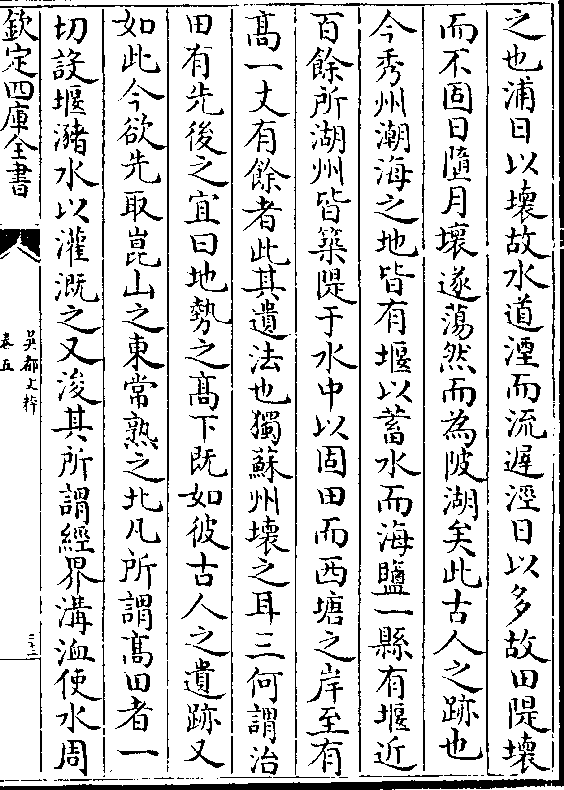 之也浦日以壞故水道湮而流遲涇日以多故田隄壞
而不固日隳月壞遂蕩然而為陂湖矣此古人之跡也
今秀州潮海之地皆有堰以蓄水而海鹽一縣有堰近
百餘所湖州皆築隄于水中以固田而西塘之岸至有
髙一丈有餘者此其遺法也獨蘇州壞之耳三何謂治
田有先後之宜曰地勢之髙下既如彼古人之遺跡又
如此今欲先取崑山之東常熟之北凡所謂髙田者一
切設堰瀦水以灌溉之又浚其所謂經界溝洫使水周
欽定四庫全書
吳都文粹
卷五
三十三